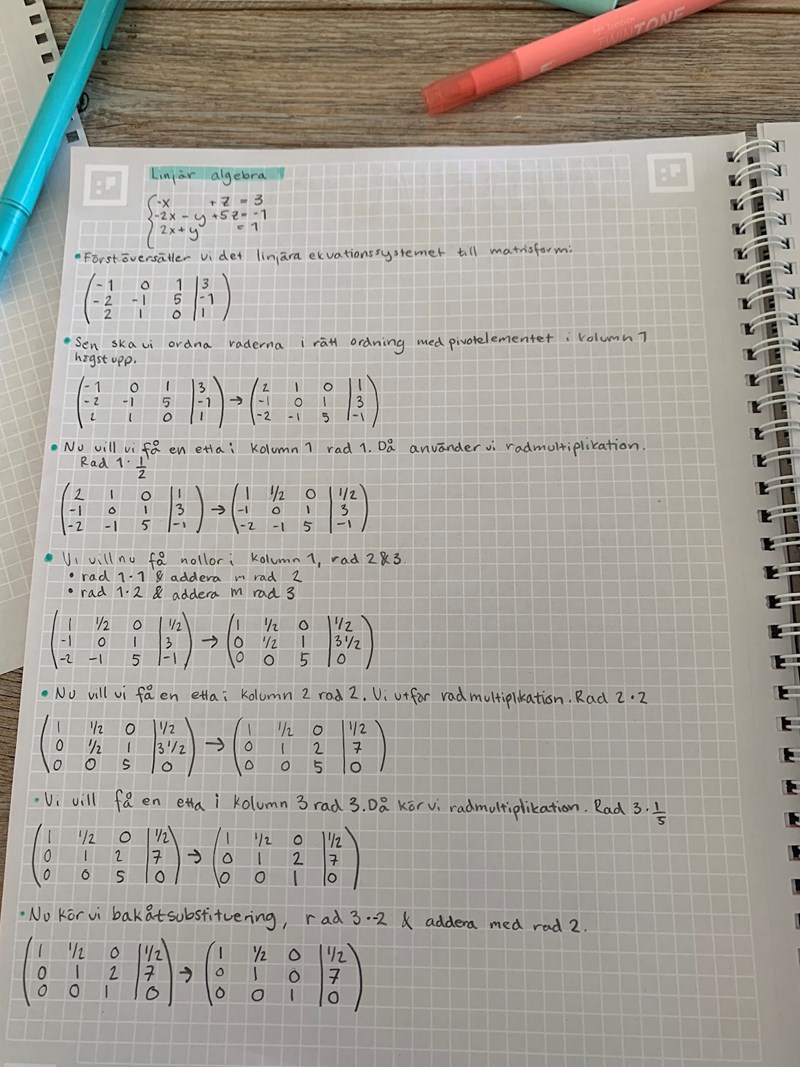 TWINTONE
Linjär algebra
-x + z = 3
-2x - y + 5z = -1
2x + y = 1
Först översätter vi det linjära ekvationssystemet till matrisform:
-1 0 1 | 3
-2 -1 5 | -1
2 1 0 | 1
Sen ska vi ordna raderna i rätt ordning med pivotelementet i kolumn 1
högst upp.
-1 0 1 | 3 → 2 1 0 | 1
-2 -1 5 | -1 → -1 0 1 | 3
2 1 0 | 1 → -2 -1 5 | -1
Nu vill vi få en etta i kolumn 1 rad 1. Då använder vi radmultiplikation.
Rad 1 · 1/2
2 1 0 | 1 → 1 1/2 0 | 1/2
-1 0 1 | 3 → -1 0 1 | 3
-2 -1 5 | -1 → -2 -1 5 | -1
Vi vill nu få nollor i kolumn 1, rad 2 & 3
• rad 1 · 1 & addera m rad 2
• rad 1 · 2 & addera m rad 3
1 1/2 0 | 1/2 → 1 1/2 0 | 1/2
-1 0 1 | 3 → 0 1/2 1 | 3 1/2
-2 -1 5 | -1 → 0 0 5 | 0
Nu vill vi få en etta i kolumn 2 rad 2. Vi utför radmultiplikation. Rad 2 · 2
1 1/2 0 | 1/2 → 1 1/2 0 | 1/2
0 1/2 1 | 3 1/2 → 0 1 2 | 7
0 0 5 | 0 → 0 0 5 | 0
Vi vill få en etta i kolumn 3 rad 3. Då kör vi radmultiplikation. Rad 3 · 1/5
1 1/2 0 | 1/2 → 1 1/2 0 | 1/2
0 1 2 | 7 → 0 1 2 | 7
0 0 5 | 0 → 0 0 1 | 0
Nu kör vi bakåtsubstituering, rad 3 · -2 & addera med rad 2.
1 1/2 0 | 1/2 → 1 1/2 0 | 1/2
0 1 2 | 7 → 0 1 0 | 7
0 0 1 | 0 → 0 0 1 | 0